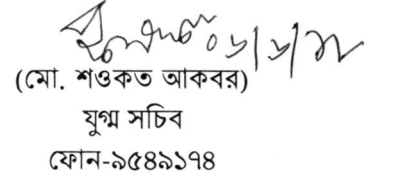 (মো. শওকত আকবর)
যুগ্ম সচিব
ফোন-৯৫৪৯১৭৪